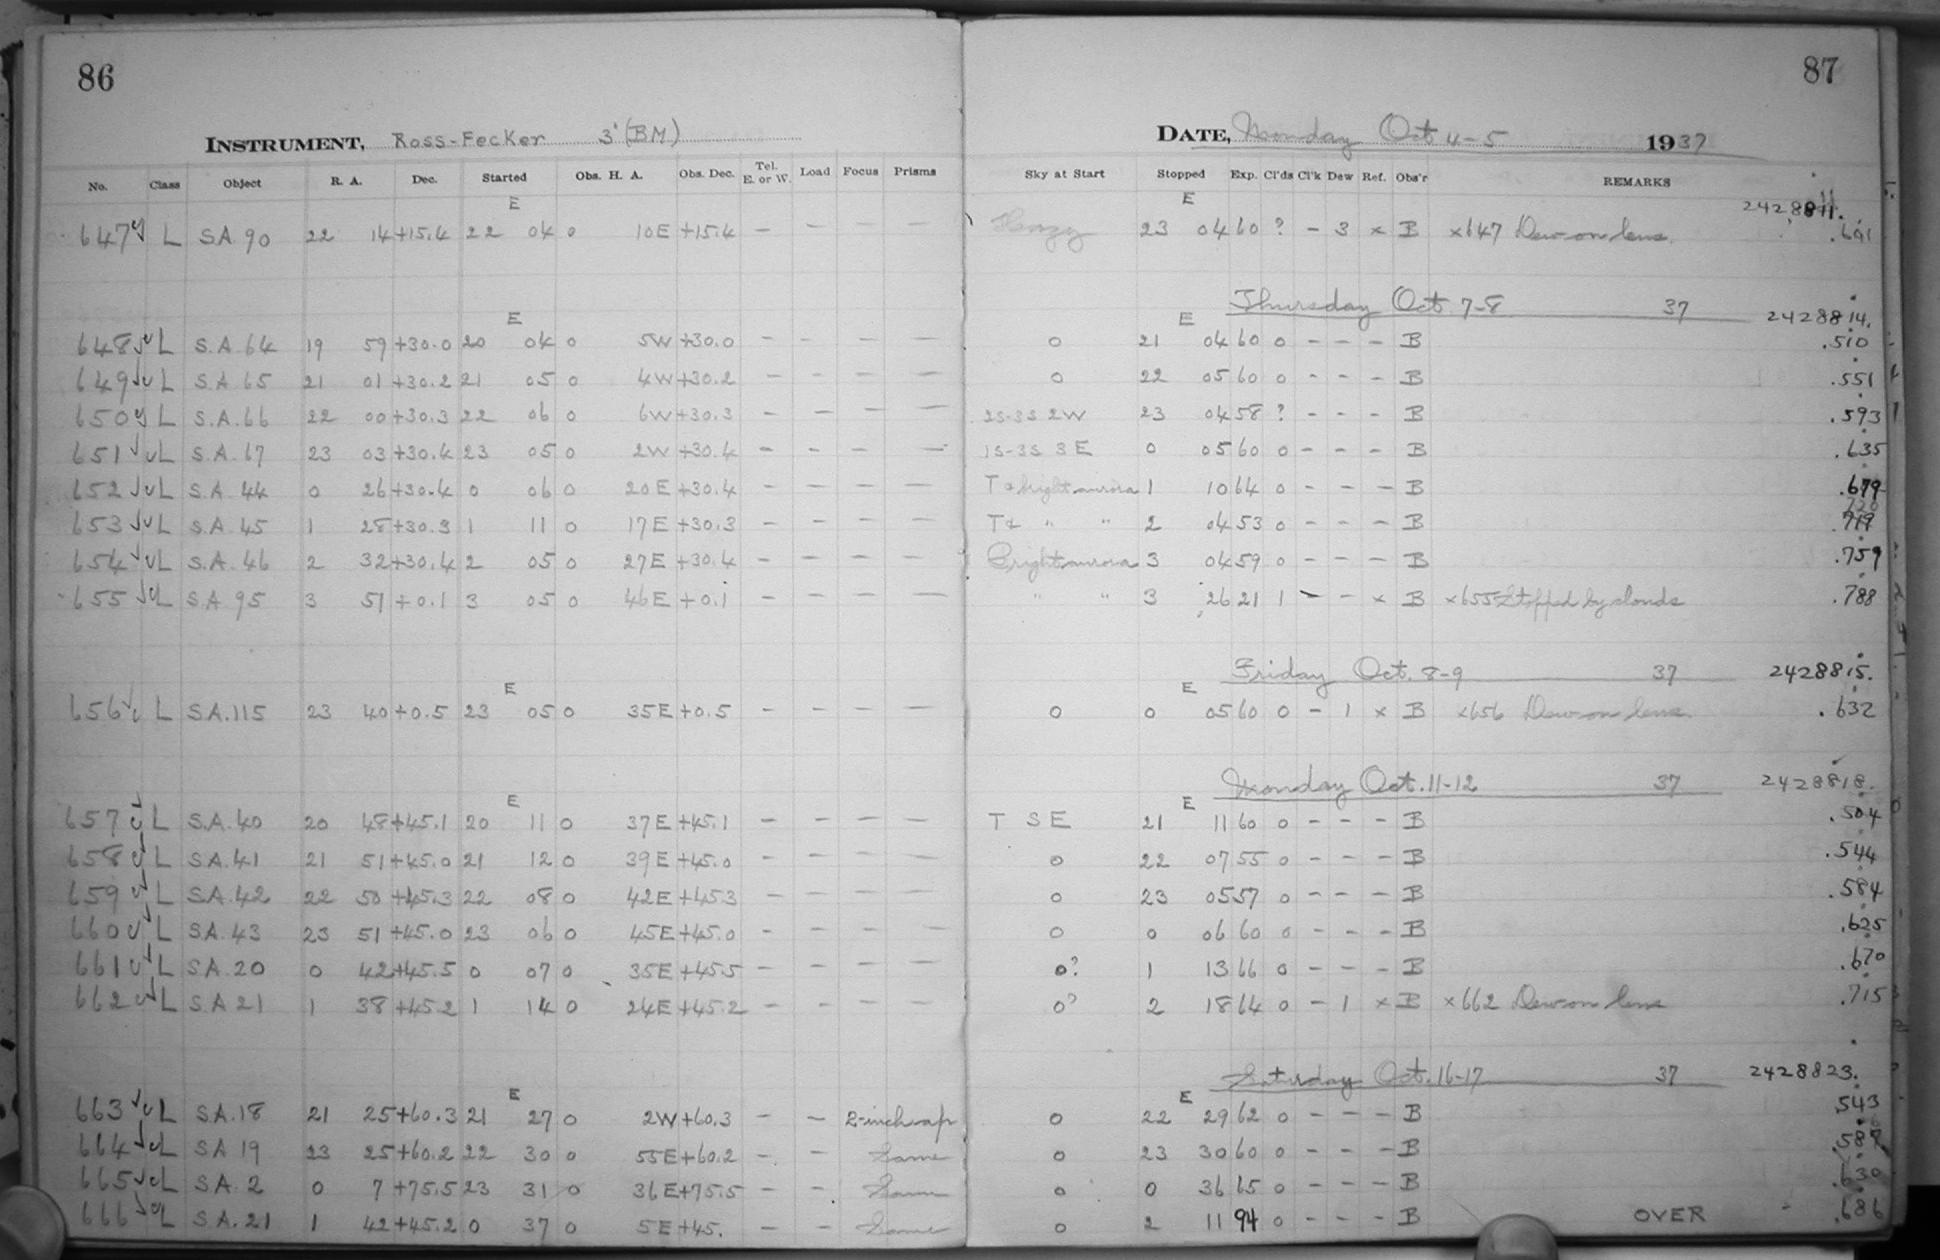 86
INSTRUMENT, Ross-Fecker 3" (BM)
No. Class Object R. A. Dec. Started Obs. H. A. Obs. Dec. Tel. E. or W. Load Focus Prisms
E
647 L S.A. 90 22 14 +15.4 22 04 0 10E +15.4 - - - -
E
648 L S.A. 64 19 59 +30.0 20 04 0 5W +30.0 - - - -
649 L S.A. 65 21 01 +30.2 21 05 0 4W +30.2 - - - -
650 L S.A. 66 22 00 +30.3 22 06 0 6W +30.3 - - - -
651 L S.A. 67 23 03 +30.4 23 05 0 2W +30.4 - - - -
652 L S.A. 44 0 26 +30.4 0 06 0 20E +30.4 - - - -
653 L S.A. 45 1 28 +30.3 1 11 0 17E +30.3 - - - -
654 L S.A. 46 2 32 +30.4 2 05 0 27E +30.4 - - - -
655 L S.A. 95 3 51 +0.1 3 05 0 46E +0.1 - - - -
E
656 L S.A. 115 23 40 +0.5 23 05 0 35E +0.5 - - - -
E
657 L S.A. 40 20 48 +45.1 20 11 0 37E +45.1 - - - -
658 L S.A. 41 21 51 +45.0 21 12 0 39E +45.0 - - - -
659 L S.A. 42 22 50 +45.3 22 08 0 42E +45.3 - - - -
660 L S.A. 43 23 51 +45.0 23 06 0 45E +45.0 - - - -
661 L S.A. 20 0 42 +45.5 0 07 0 35E +45.5 - - - -
662 L S.A. 21 1 38 +45.2 1 14 0 24E +45.2 - - - -
E
663 L S.A. 18 21 25 +60.3 21 27 0 2W +60.3 - - 2-inch cap
664 L S.A. 19 23 25 +60.2 22 30 0 55E +60.2 - - Same
665 L S.A. 2 0 7 +75.5 23 31 0 36E +75.5 - - Same
666 L S.A. 21 1 42 +45.2 0 37 0 5E +45. - - Same
87
DATE, Monday Oct 4-5 1937
Sky at Start Stopped Exp. Cl'ds Cl'k Dew Ref. Obs'r REMARKS
E 2428811.
Hazy 23 04 60 ? - 3 x B x647 Dew on lens .641
Thursday Oct. 7-8 37 2428814.
E
0 21 04 60 0 - - - B .510
0 22 05 60 0 - - - B .551
2S-3S 2W 23 04 58 ? - - - B .593
1S-3S 3E 0 05 60 0 - - - B .635
T & bright aurora 1 10 64 0 - - - B .679
T & " " 2 04 53 0 - - - B .719 720
Bright aurora 3 04 59 0 - - - B .759
" " 3 26 21 1 - - x B x655 Stopped by clouds .788
Friday Oct. 8-9 37 2428815.
E
0 0 05 60 0 - 1 x B x656 Dew on lens .632
Monday Oct. 11-12 37 2428818.
E
T SE 21 11 60 0 - - - B .504
0 22 07 55 0 - - - B .544
0 23 05 57 0 - - - B .584
0 0 06 60 0 - - - B .625
0? 1 13 66 0 - - - B .670
0? 2 18 64 0 - 1 x B x662 Dew on lens .715
Saturday Oct. 16-17 37 2428823.
E
0 22 29 62 0 - - - B .543
0 23 30 60 0 - - - B .587
0 0 36 65 0 - - - B .630
0 2 11 94 0 - - - B OVER .686